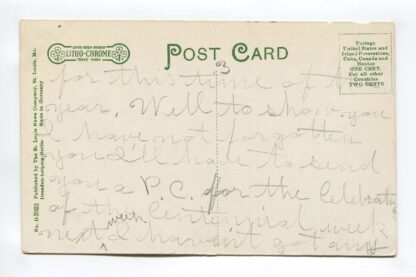 LITHO-CHROME
TRADE MARK
POST CARD
Postage
United States and
Island Possessions,
Cuba, Canada and
Mexico
ONE CENT.
For all other
Countries
TWO CENTS
for this time of the
year. Well to show you
I have not forgotten
you I'll have to send
you a P.C. for the Celebration
of the Centennial week
next week I haven't got any
Published by The St. Louis News Company, St. Louis, Mo.
Dresden-Leipzig-Berlin
Made in Germany